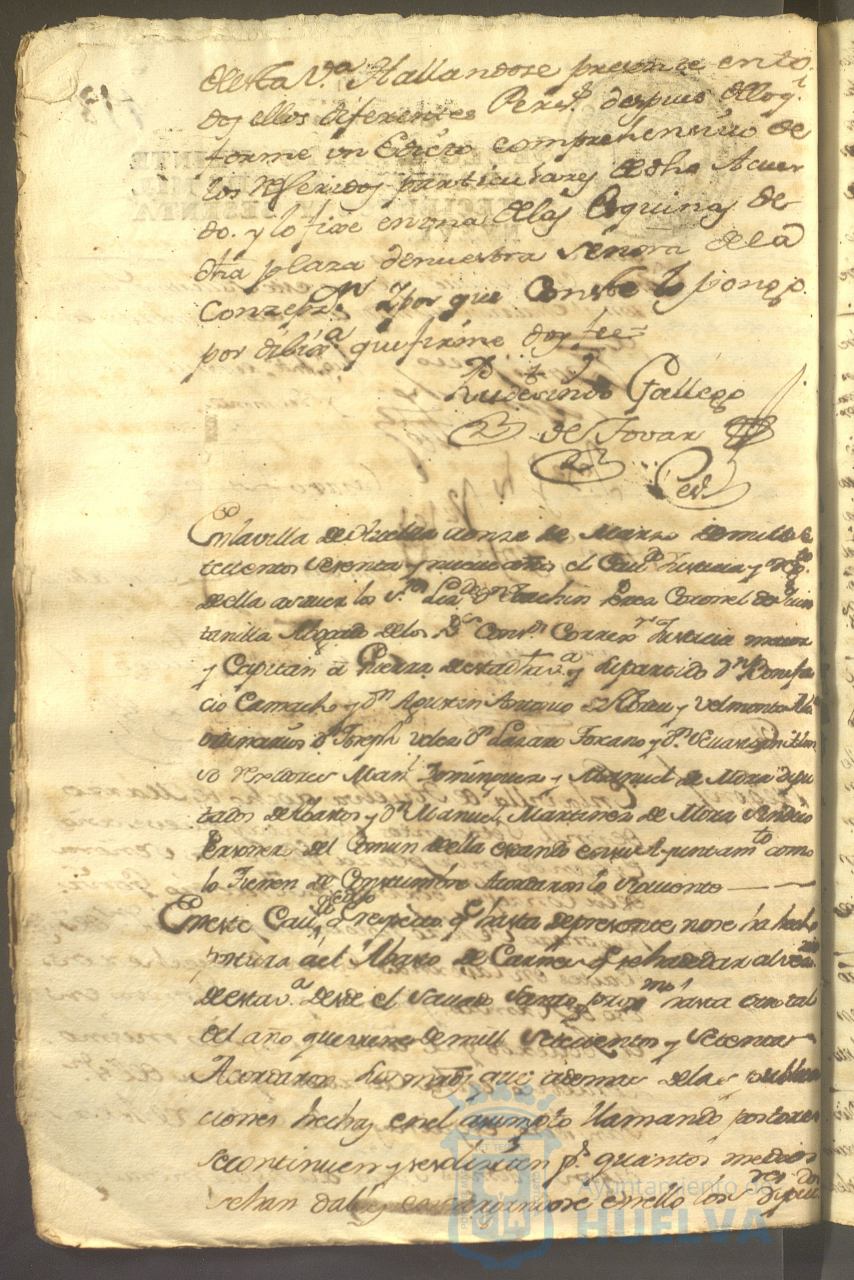 desta V.ª Hallandose presente en to
dos ellos diferentes Pers.s despues de lo q.l
forme un Edicto comprehensivo de
los Referidos particulares de dho Acuer
do. y lo fixe en una de las Esquinas de
dha plaza de nuestra Señora de la
Conzepz.n Y por que Conste lo pongo
por dilix.ª que firme doy fee=
Rudesindo Gallego
de Tovar
Es.no
En la villa de Huelva a onze de Marzo de mill Se
tecientos Sesenta y nueve años el Cav.º Justicia y Reg.to
de ella a saver los S.res Liz.do D.n Joachin Perea Coronel de Quin
tanilla Abogado de los R.s Cons.os Correx.or Justicia maior
y Capitan a Guerra de esta dha v.ª y su partido D.n Bonifa
cio Camacho y D.n Agustin Antonio de Abreu y Velmonte Al.s
ordinarios D.n Joseph Velez D.n Lazaro Forcano y D.n
Rexidores Man.l Dominguez y Manuel de Mora Dipu
tados de Abastos y D.n Manuel Martinez de Mora Sindico
Personero del Comun de ella estando en su Ayuntam.to como
lo tienen de Costumbre Acordaron lo Siguiente
En este Cav.do respecto q.e hasta de presente no se ha hecho
postura a el Abasto de Carnes q.e se ha de dar al vez.rio
de esta v.ª desde el Savado Santo prox.mo hasta otro tal
del año que viene de mill Setecientos y Setenta
Acordaron sus mrds que ademas de las publica
ciones hechas en el asumpto llamando postores
se continuen y rexistren p.r quantos medios
sehan dables encargandose en ello los S.res Dipu
Ayuntamiento de
HUELVA